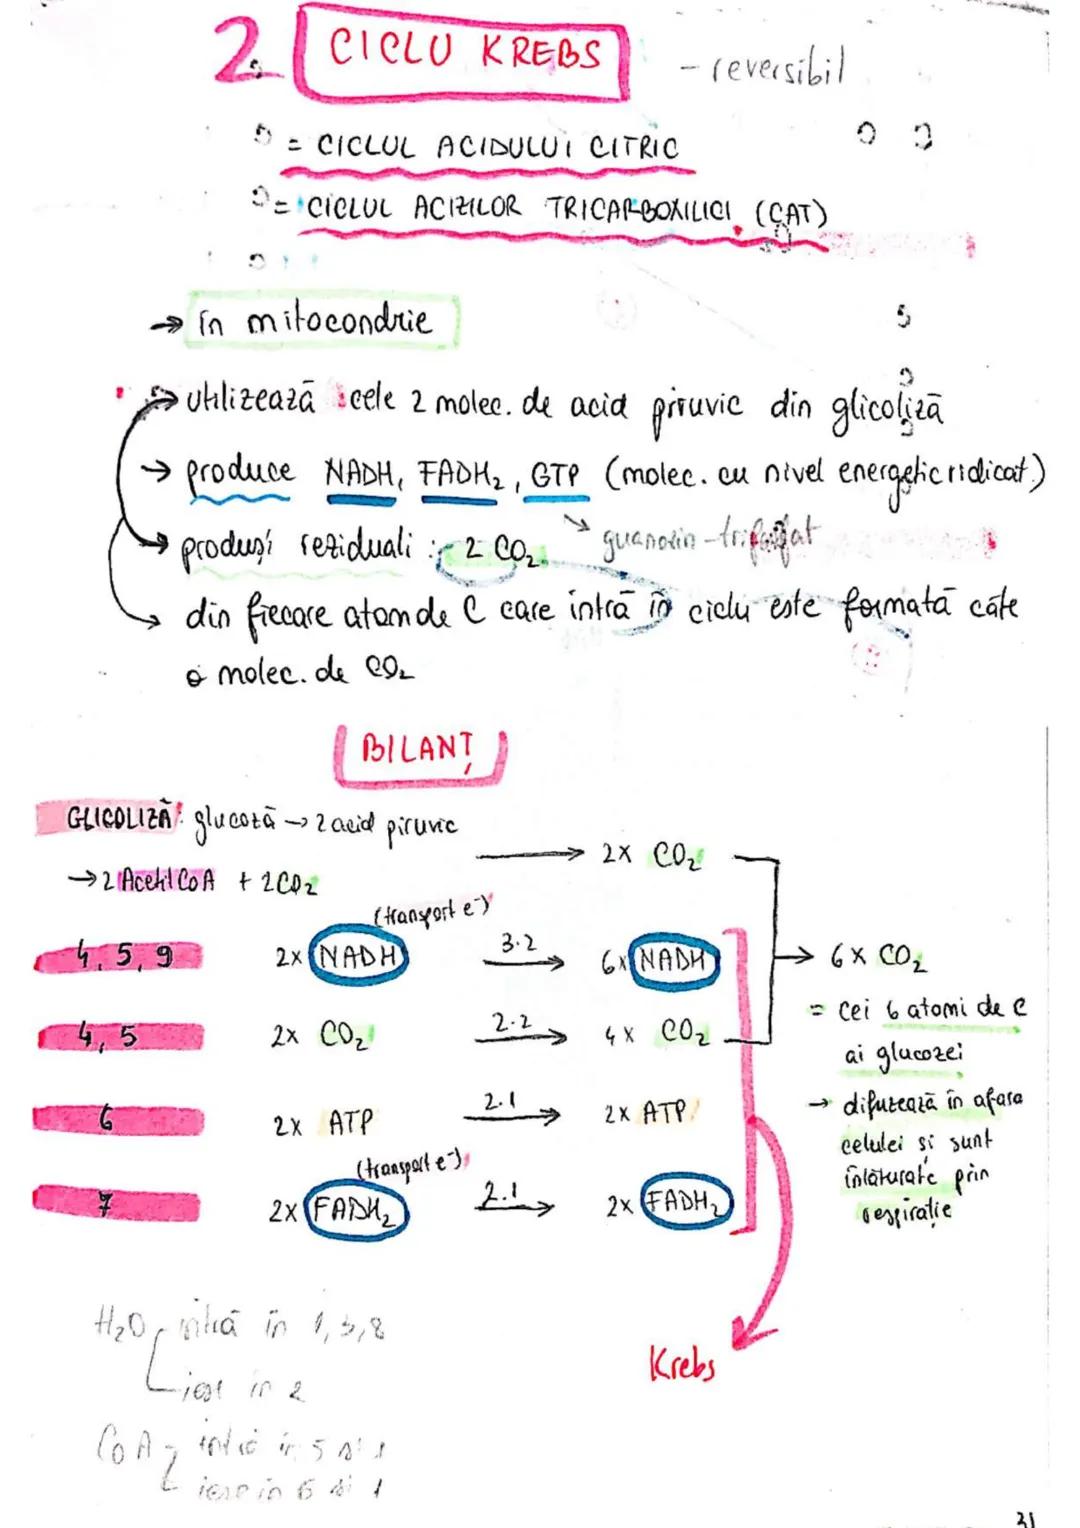 2. CICLU KREBS - reversibil
= CICLUL ACIDULUI CITRIC
= CICLUL ACIZILOR TRICARBOXILICI (CAT)
→ în mitocondrie
→ utilizează cele 2 molec. de acid piruvic din glicoliză
→ produce NADH, FADH₂, GTP (molec. cu nivel energetic ridicat)
→ produși reziduali : 2 CO₂ guanozin-trifosfat
→ din fiecare atom de C care intră în ciclu este formată câte
o molec. de CO₂
BILANȚ
GLICOLIZĂ: glucoză → 2 acid piruvic
→ 2 Acetil CoA + 2CO₂ → 2x CO₂
(transport e⁻)
4, 5, 9 2x NADH 3·2 → 6x NADH → 6x CO₂
= cei 6 atomi de C
4, 5 2x CO₂ 2·2 → 4x CO₂
ai glucozei
6 2x ATP 2·1 → 2x ATP
→ difuzează în afara
celulei și sunt
(transport e⁻)
înlăturate prin
7 2x FADH₂ 2·1 → 2x FADH₂
respirație
H₂O intră în 1, 3, 8
iese în 2
Krebs
CoA intră în 5 și 1
iese în 6 și 1
31